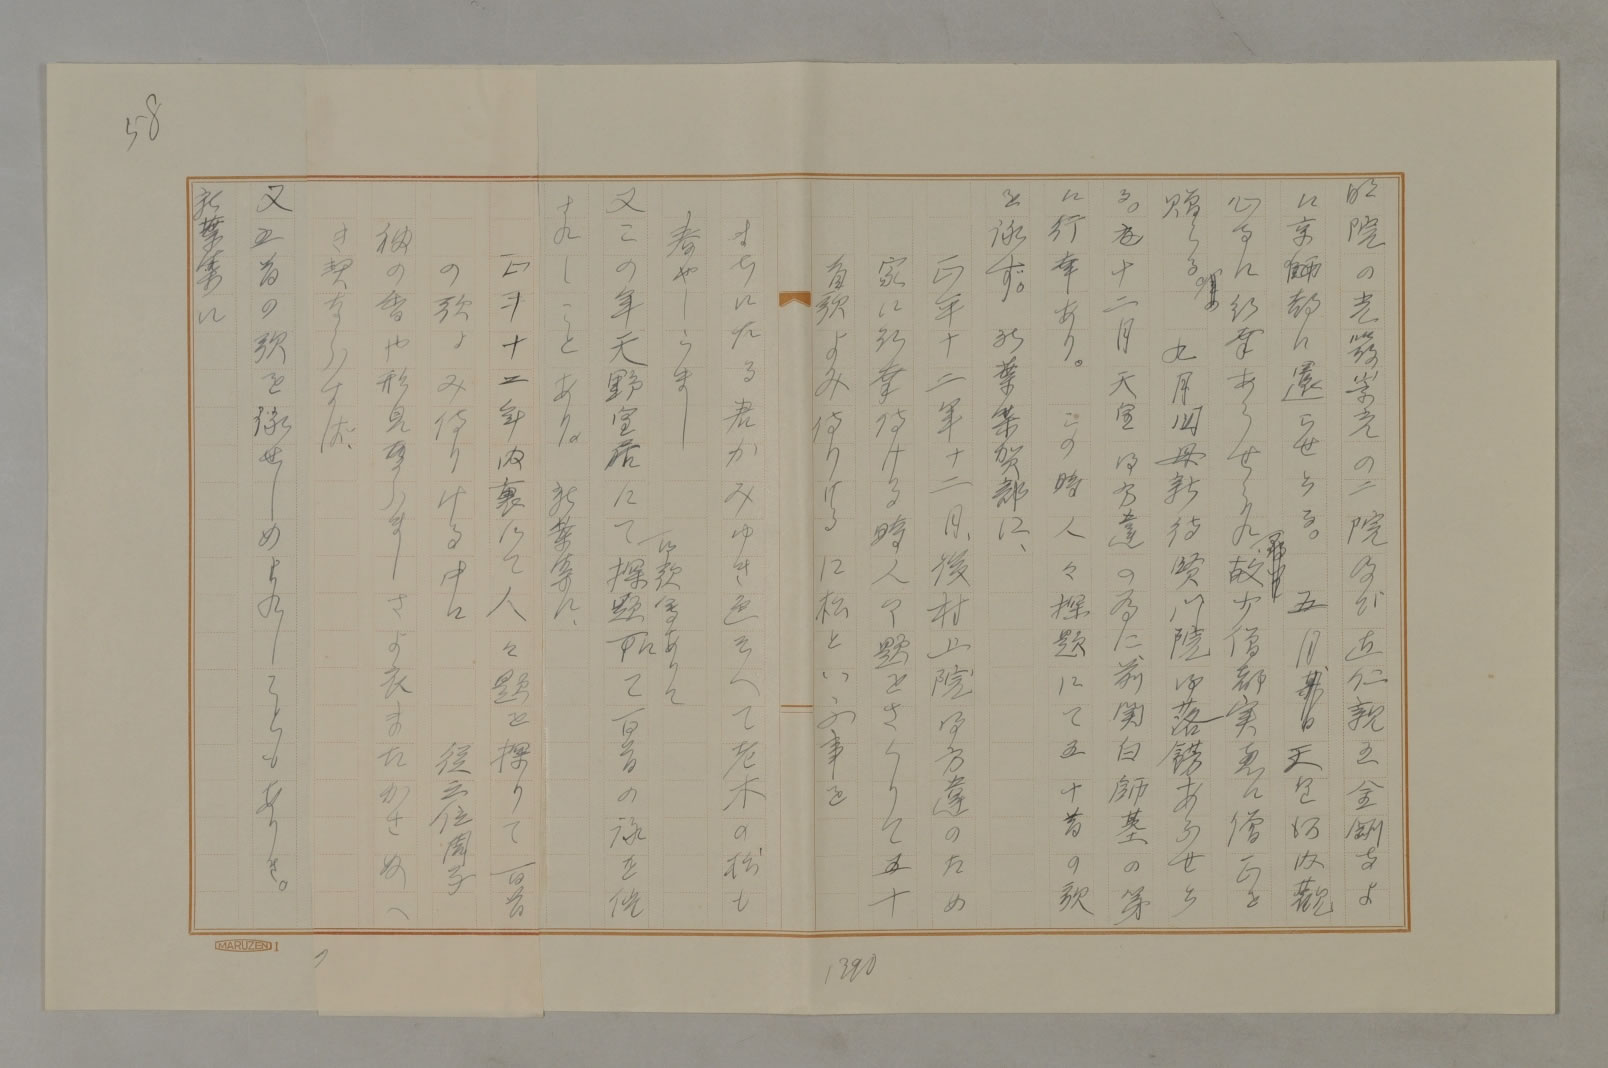 58
明院の光嚴崇光の二院及び直仁親王金剛寺よ
に京都に還らせらる。五月某日天皇河内觀
心寺に行幸あらせられ、故大僧都実恵に僧正を
贈らる。九月国母新待賢門院御落錺あらせら
る。十二月天皇御方違の為に前関白師基の第
に行幸あり。この時人々探題にて五十首の歌
を詠ず。新葉集賀部に、
正平十二年十二月、後村上院御方違のため
家に行幸侍ける時人々題をさくりて五十
首歌よみ侍りけるに松といふ事を
まちにたる君かみゆき色そへて老木の松も
春やしらまし
又この年天野皇居にて探題百首の詠を催
百番首ありて
されしことあり。新葉集に、
正平十二年内裏にて人々題を探りて百首
の歌よみ侍りける中に 従三位周子
袖の香や形見ならましさよ衣またかさぬへ
き契ならすは、
又五首の歌を録せしめられしこともありき。
新葉集に
MARUZEN 1
1390